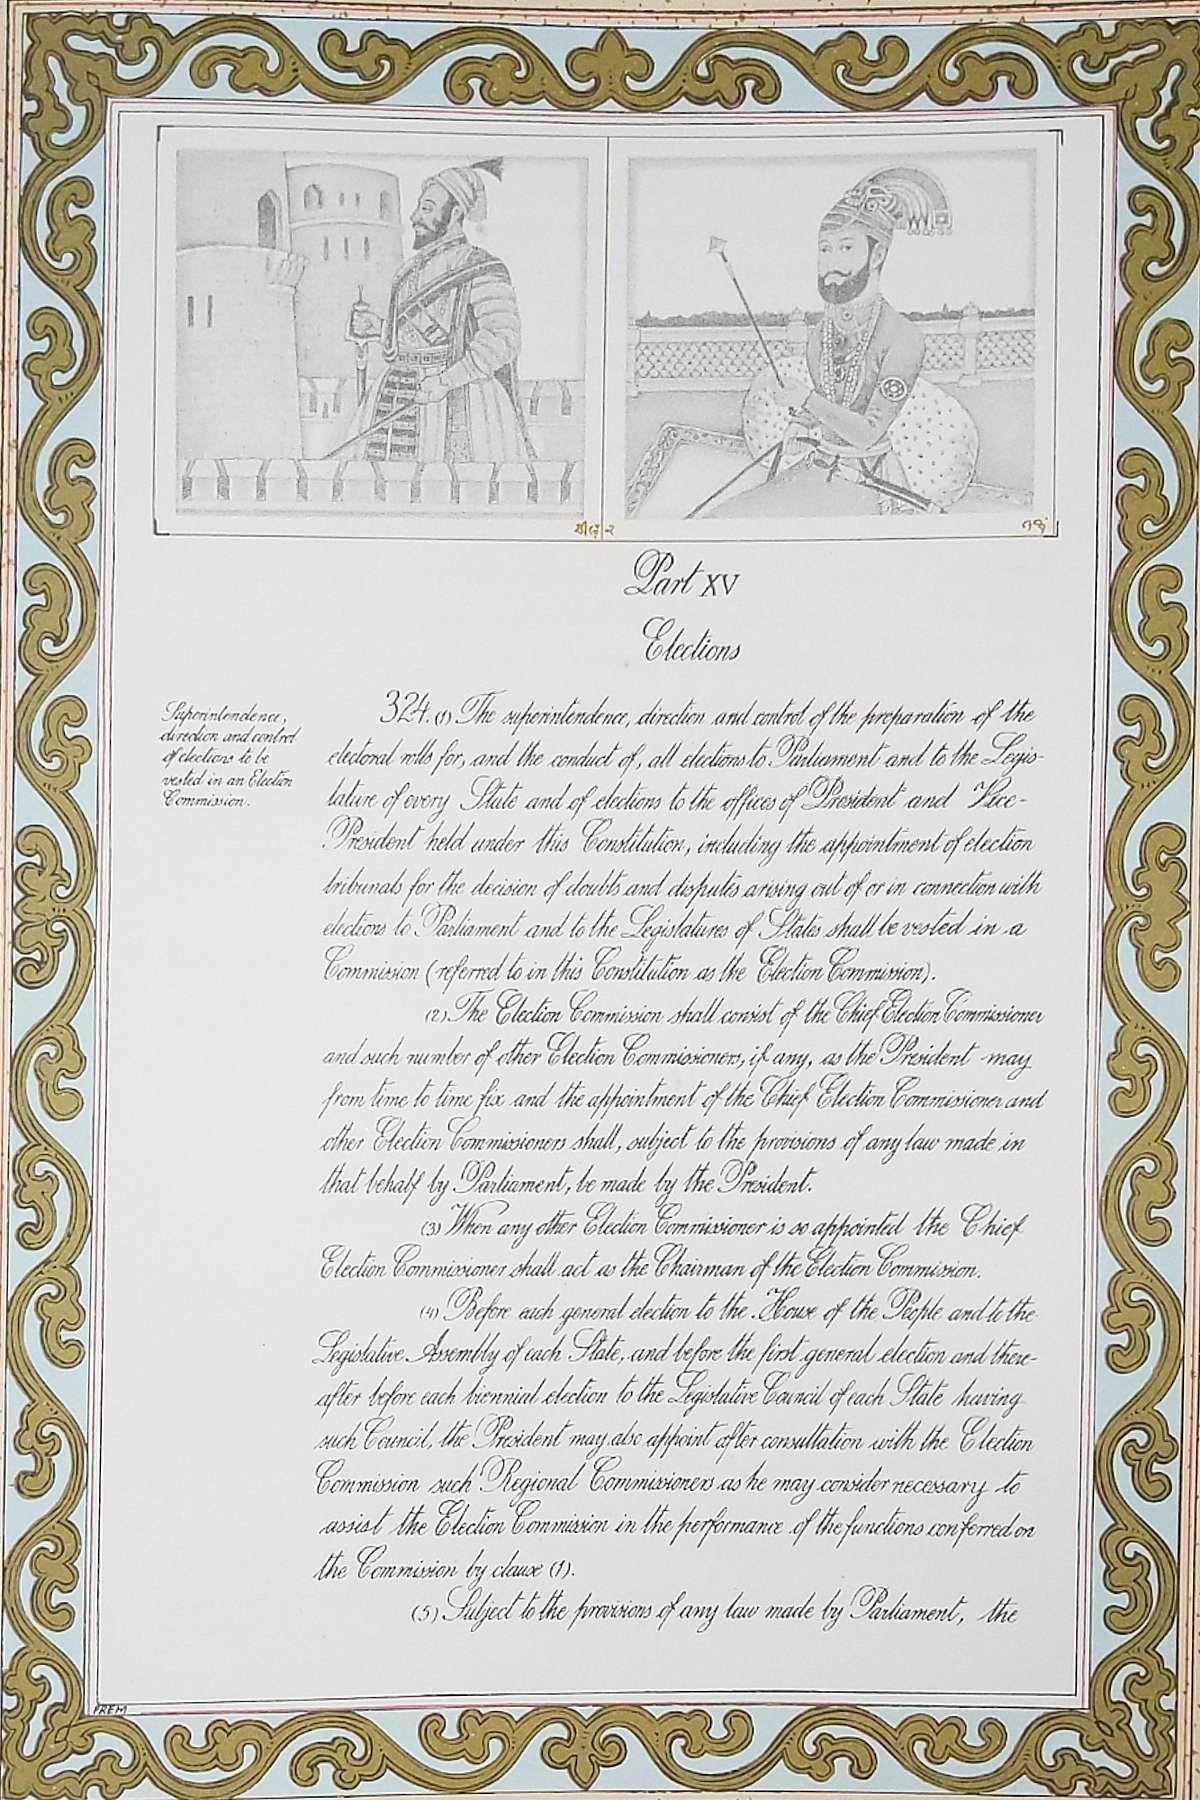 Part XV
Elections
Superintendence,
direction and control
of elections to be
vested in an Election
Commission.
324. (1) The superintendence, direction and control of the preparation of the
electoral rolls for, and the conduct of, all elections to Parliament and to the Legis-
lature of every State and of elections to the offices of President and Vice-
President held under this Constitution, including the appointment of election
tribunals for the decision of doubts and disputes arising out of or in connection with
elections to Parliament and to the Legislatures of States shall be vested in a
Commission (referred to in this Constitution as the Election Commission).
(2) The Election Commission shall consist of the Chief Election Commissioner
and such number of other Election Commissioners, if any, as the President may
from time to time fix and the appointment of the Chief Election Commissioner and
other Election Commissioners shall, subject to the provisions of any law made in
that behalf by Parliament, be made by the President.
(3) When any other Election Commissioner is so appointed the Chief
Election Commissioner shall act as the Chairman of the Election Commission.
(4) Before each general election to the House of the People and to the
Legislative Assembly of each State, and before the first general election and there-
after before each biennial election to the Legislative Council of each State having
such Council, the President may also appoint after consultation with the Election
Commission such Regional Commissioners as he may consider necessary to
assist the Election Commission in the performance of the functions conferred on
the Commission by clause (1).
(5) Subject to the provisions of any law made by Parliament, the
PREM